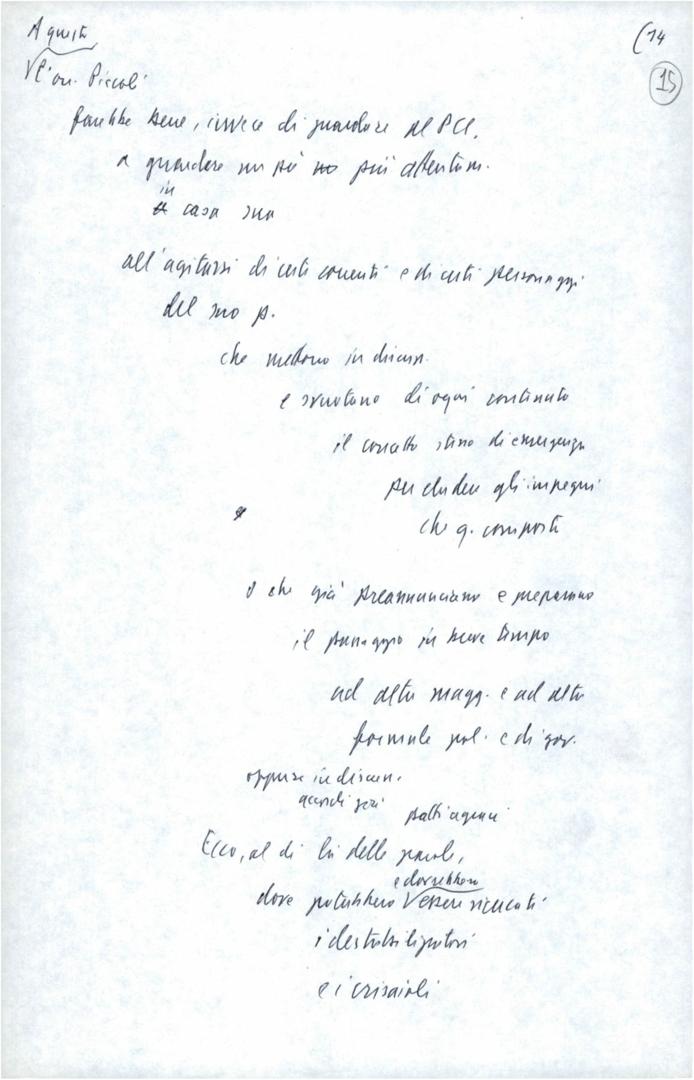 (14
15
A questo
l'on. Piccoli
farebbe bene, invece di guardare al PCI,
a guardare un po' più attentam.
in
casa sua
all'agitarsi di certe correnti e di certi personaggi
del suo p.
che mettono in discuss.
e svuotano di ogni contenuto
il concetto stesso di emergenza
per eludere gli impegni
che q. comporta
o che già preannunciano e preparano
il passaggio in breve tempo
ad altre magg. e ad altre
formule pol. e di gov.
oppure in discuss.
accordi già patti agrari
Ecco, al di là delle parole,
e dovrebbero
dove potrebbero essere ricercati
i destabilizzatori
e i crisaioli